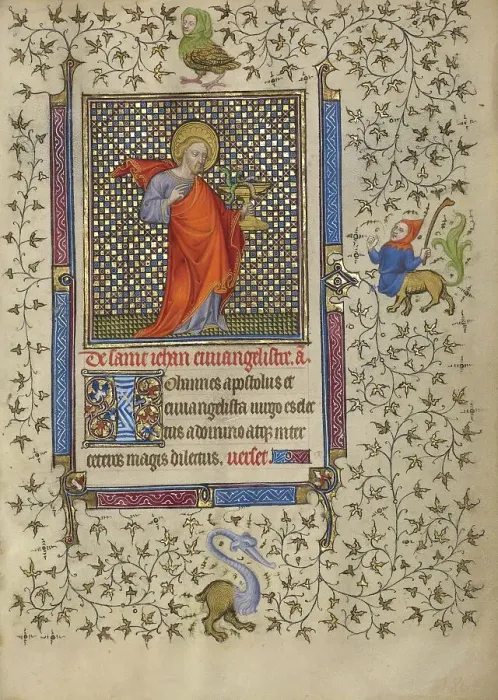 De saint iehan euuangeliste. a̅.
Iohannes apostolus et
euuangelista uirgo es elec
tus a domino atqꝫ inter
ceteros magis dilectus. uerset.